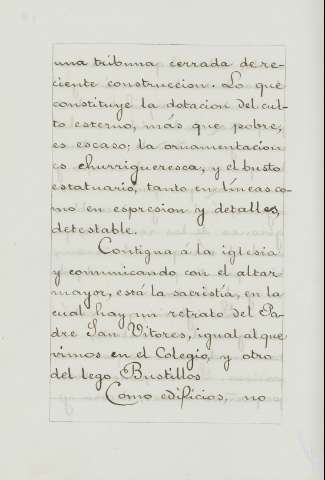 una tribuna cerrada de re-
ciente construccion. Lo que
constituye la dotacion del cul-
to esterno, más que pobre,
es escaso; la ornamentacion
es churrigueresca, y el busto
estatuario, tanto en líneas co-
mo en espresion y detalles,
detestable.
Contigua á la iglesia
y comunicando con el altar
mayor, está la sacristía, en la
cual hay un retrato del Pa-
dre San Vitores, igual al que
vimos en el Colegio, y otro
del lego Bustillos
Como edificios, no